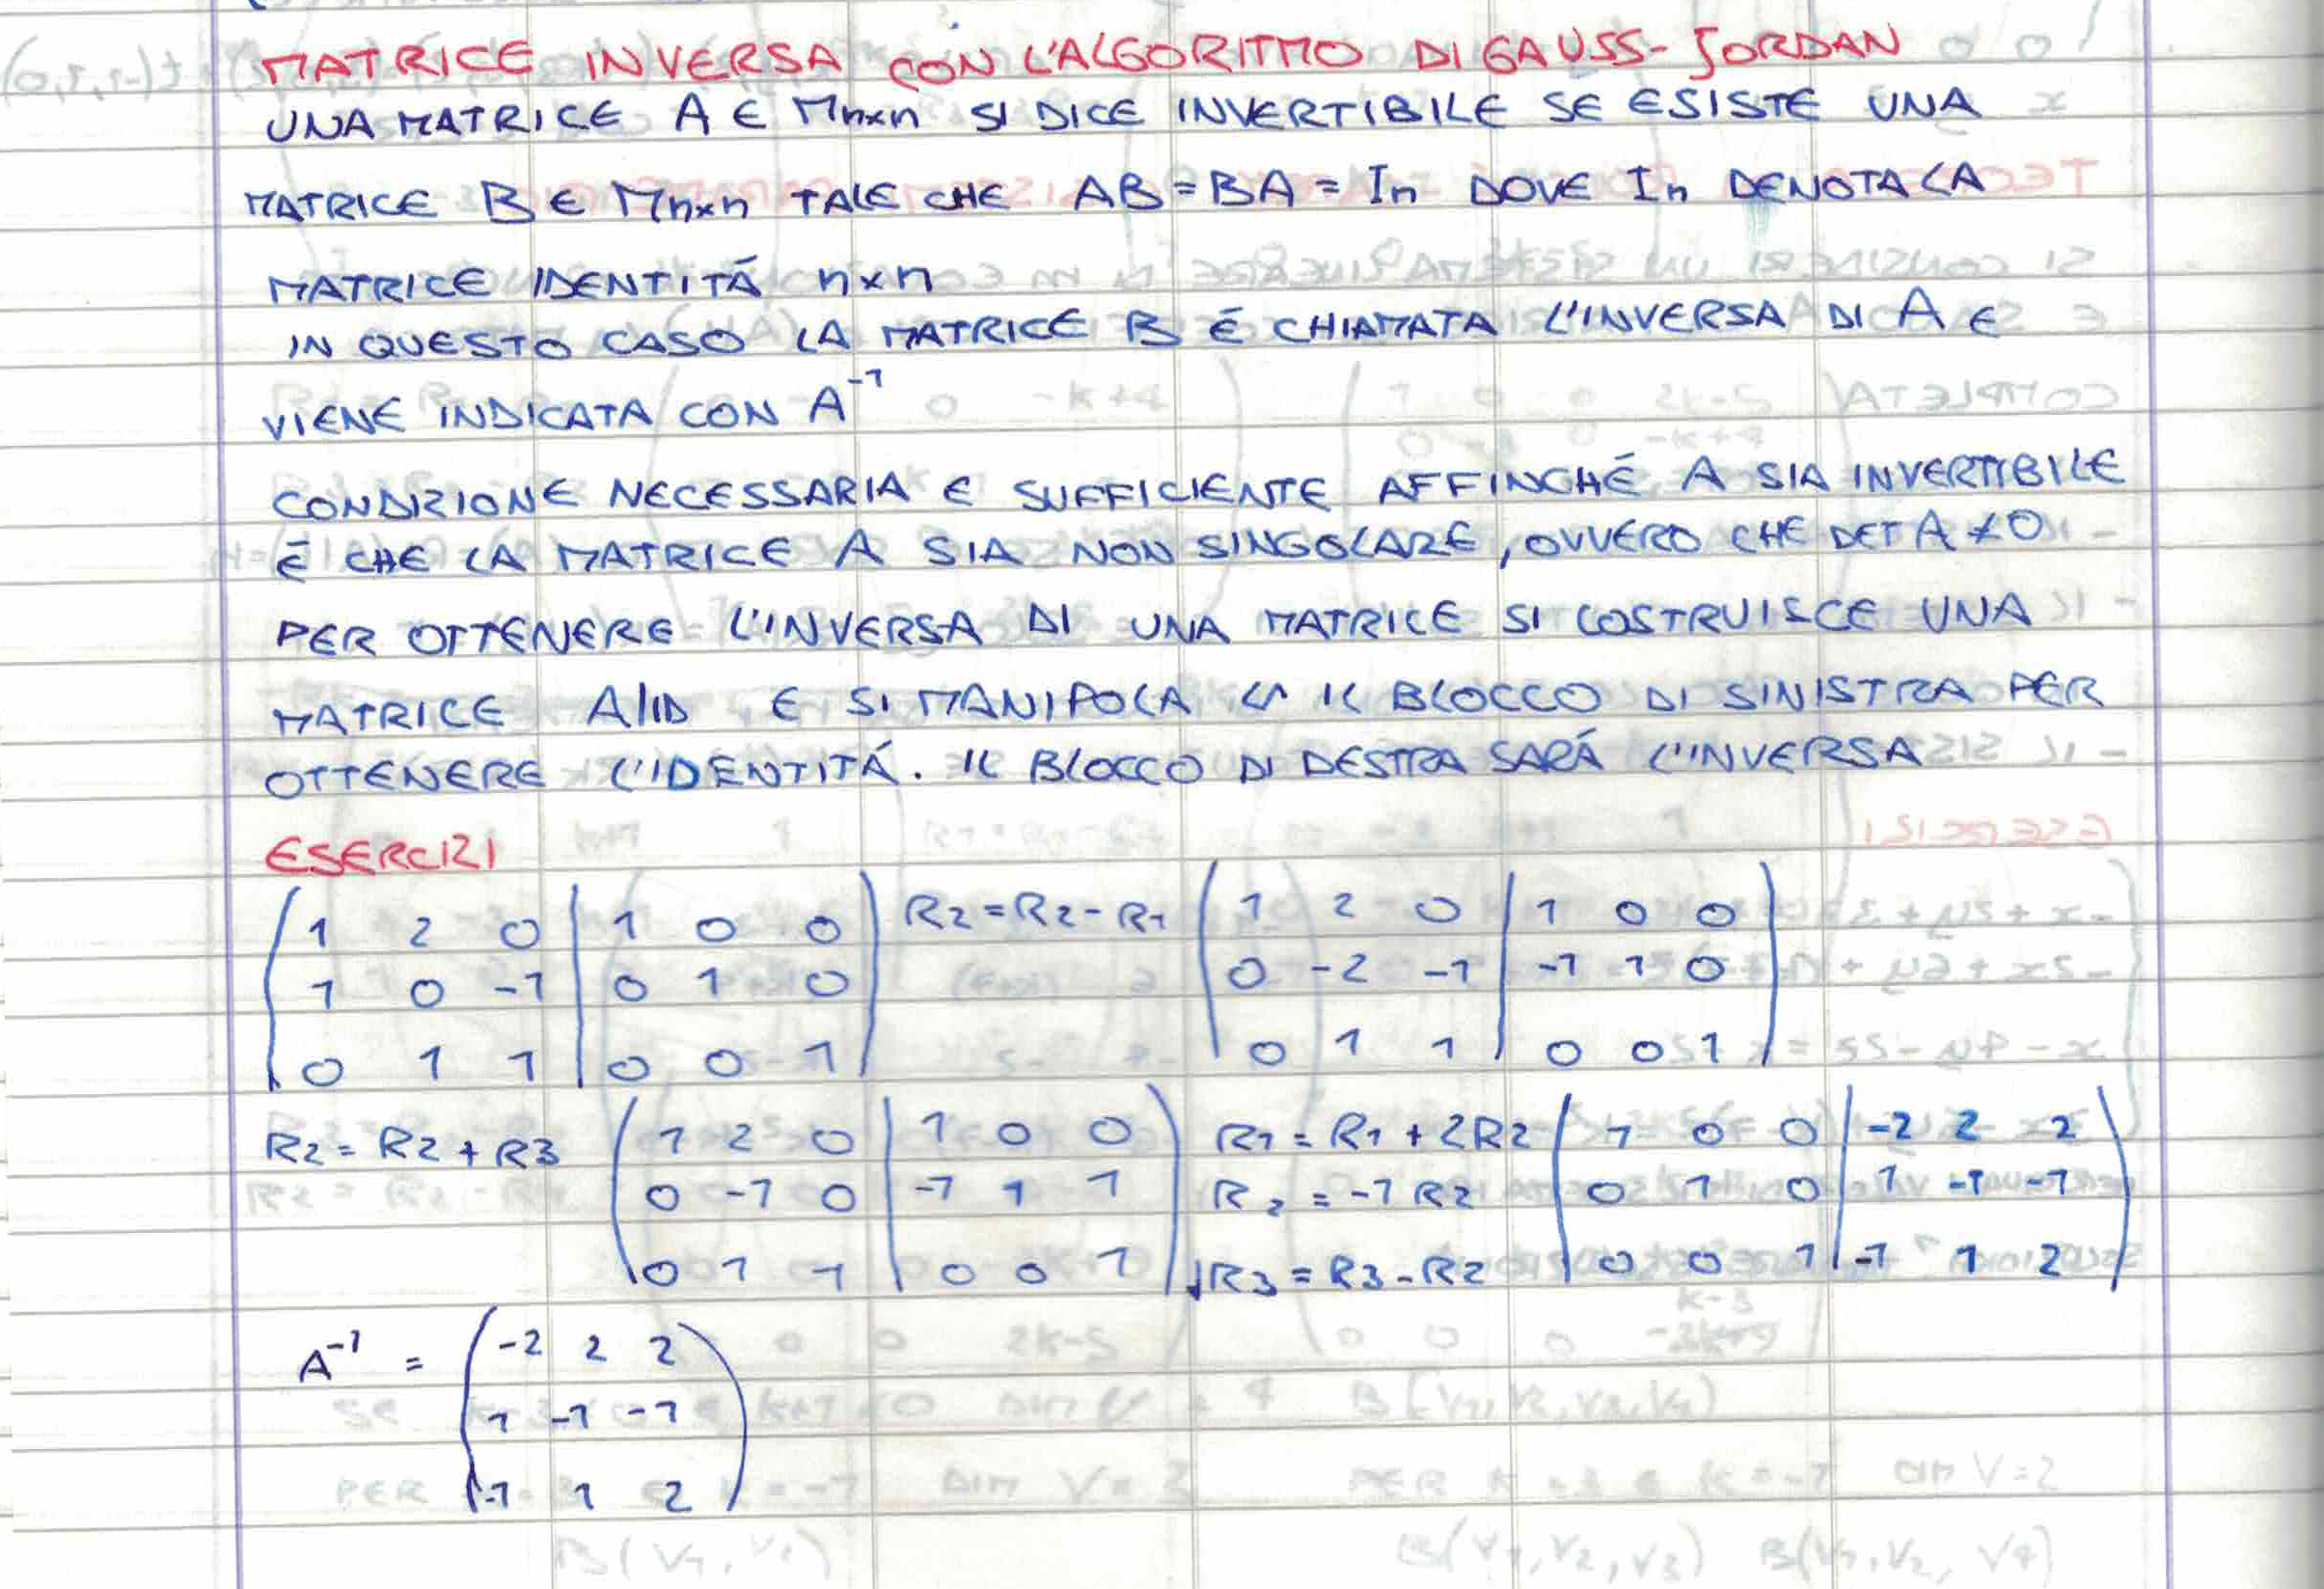 MATRICE INVERSA CON L'ALGORITMO DI GAUSS-JORDAN
UNA MATRICE A ∈ Mnxn SI DICE INVERTIBILE SE ESISTE UNA
MATRICE B ∈ Mnxn TALE CHE AB = BA = In DOVE In DENOTA LA
MATRICE IDENTITÁ nxn
IN QUESTO CASO LA MATRICE B É CHIAMATA L'INVERSA DI A E
VIENE INDICATA CON A⁻¹
CONDIZIONE NECESSARIA E SUFFICIENTE AFFINCHÉ A SIA INVERTIBILE
É CHE LA MATRICE A SIA NON SINGOLARE, OVVERO CHE DET A ≠ 0
PER OTTENERE L'INVERSA DI UNA MATRICE SI COSTRUISCE UNA
MATRICE A|ID E SI MANIPOLA IL BLOCCO DI SINISTRA PER
OTTENERE L'IDENTITÁ. IL BLOCCO DI DESTRA SARÁ L'INVERSA
ESERCIZI
1 2 0 | 1 0 0 R2 = R2 - R1 1 2 0 | 1 0 0
1 0 -1 | 0 1 0 0 -2 -1 | -1 1 0
0 1 1 | 0 0 1 0 1 1 | 0 0 1
R2 = R2 + R3 1 2 0 | 1 0 0 R1 = R1 + 2R2 1 0 0 | -2 2 2
0 -1 0 | -1 1 1 R2 = -1 R2 0 1 0 | 1 -1 -1
0 1 1 | 0 0 1 R3 = R3 - R2 0 0 1 | -1 1 2
A⁻¹ = -2 2 2
1 -1 -1
-1 1 2